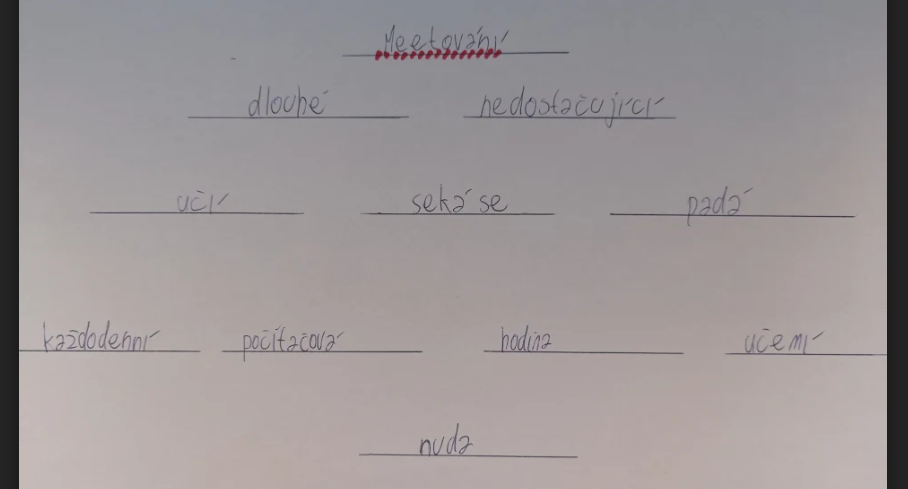 Meetování
dlouhé nedostačující
učí seká se padá
každodenní počítačová hodina učení
nuda